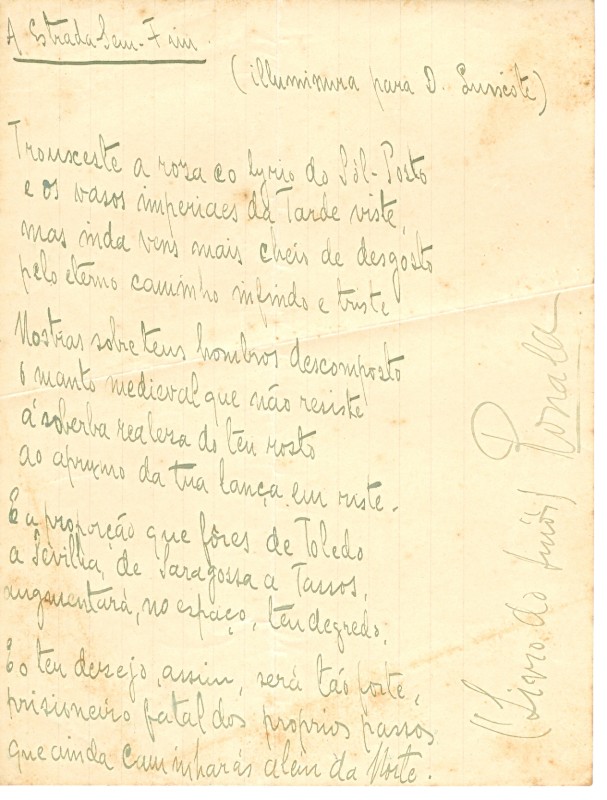 A Estrada-Sem-Fim.
(illuminura para D. Quixote)
Trouxeste a roza e o lyrio do Sól-Posto
e os vasos imperiaes da Tarde viste,
mas inda vens mais cheio de desgôsto
pelo eterno caminho infindo e triste
Mostras sobre teus hombros descomposto
o manto medieval que não resiste
á soberba realeza do teu rosto
ao aprumo da tua lança em riste.
E a proporção que fôres de Toledo
a Sevilha, de Saragossa a
augmentará, no espaço, teu degredo,
E o teu desejo, assim, será tão forte,
prisioneiro fatal dos proprios passos
que ainda caminharás alem da Morte.
(Livro do) Ronald